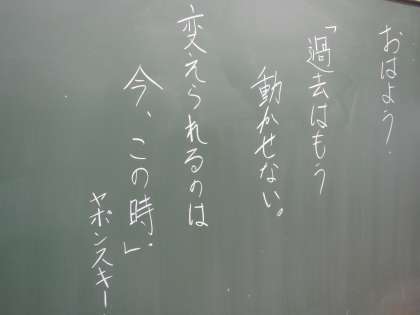 おはよう.
「過去はもう
動かせない。
変えられるのは
今、この時」.
ヤポンスキー